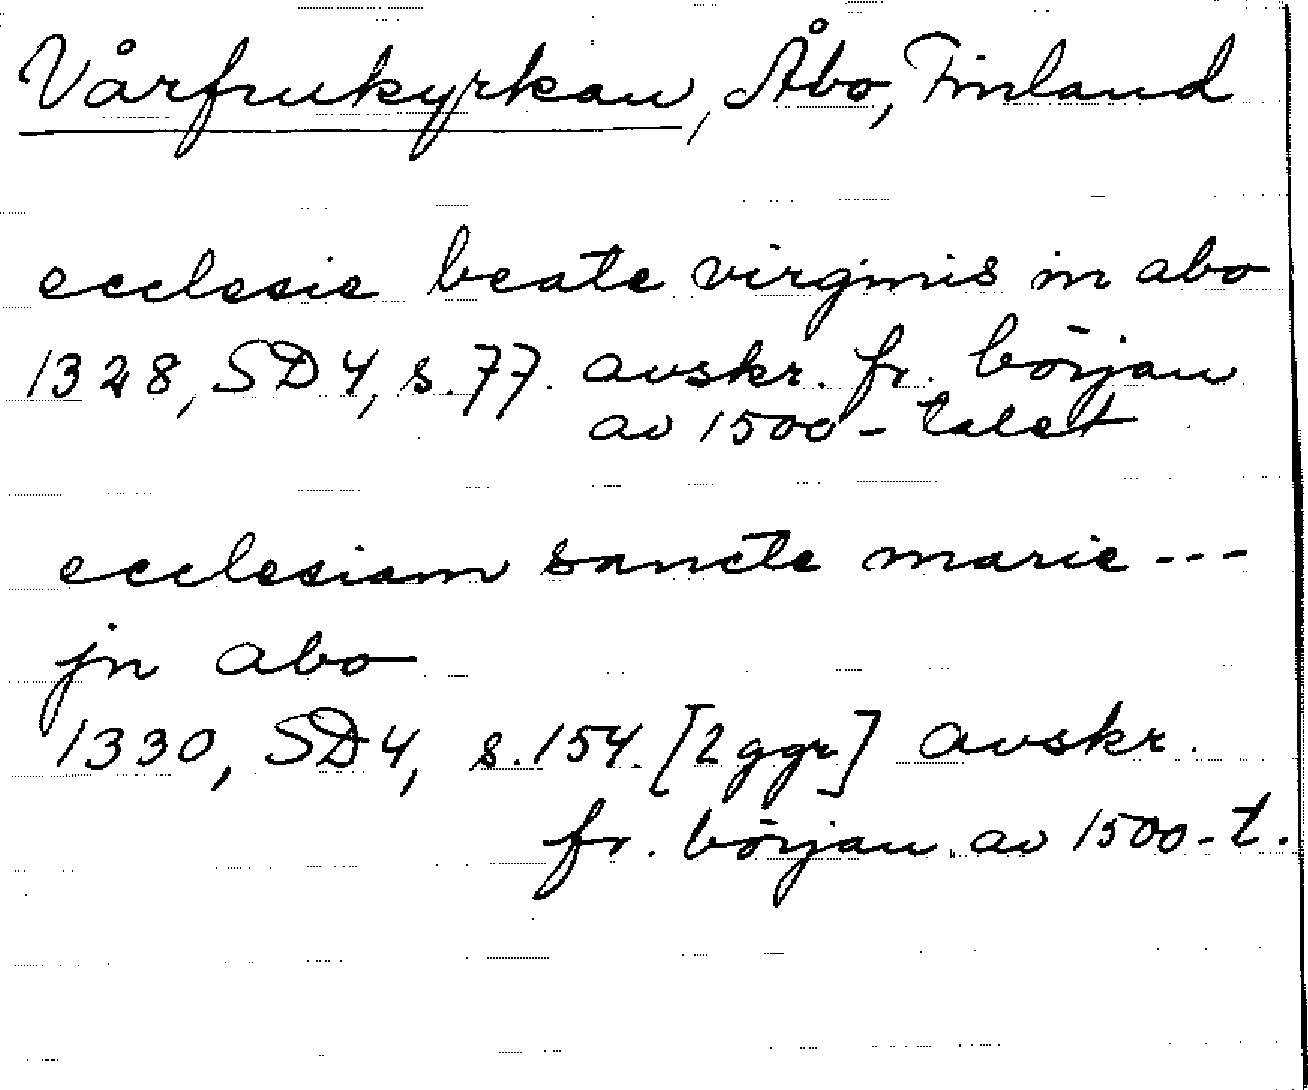 Vårfrukyrkan, Åbo, Finland
ecclesie beate virginis in abo
1328, SD4, s. 77. avskr. fr. början
av 1500-talet
ecclesiam sancte marie ---
jn abo
1330, SD4, s. 154. [2 ggr] avskr.
fr. början av 1500-t.